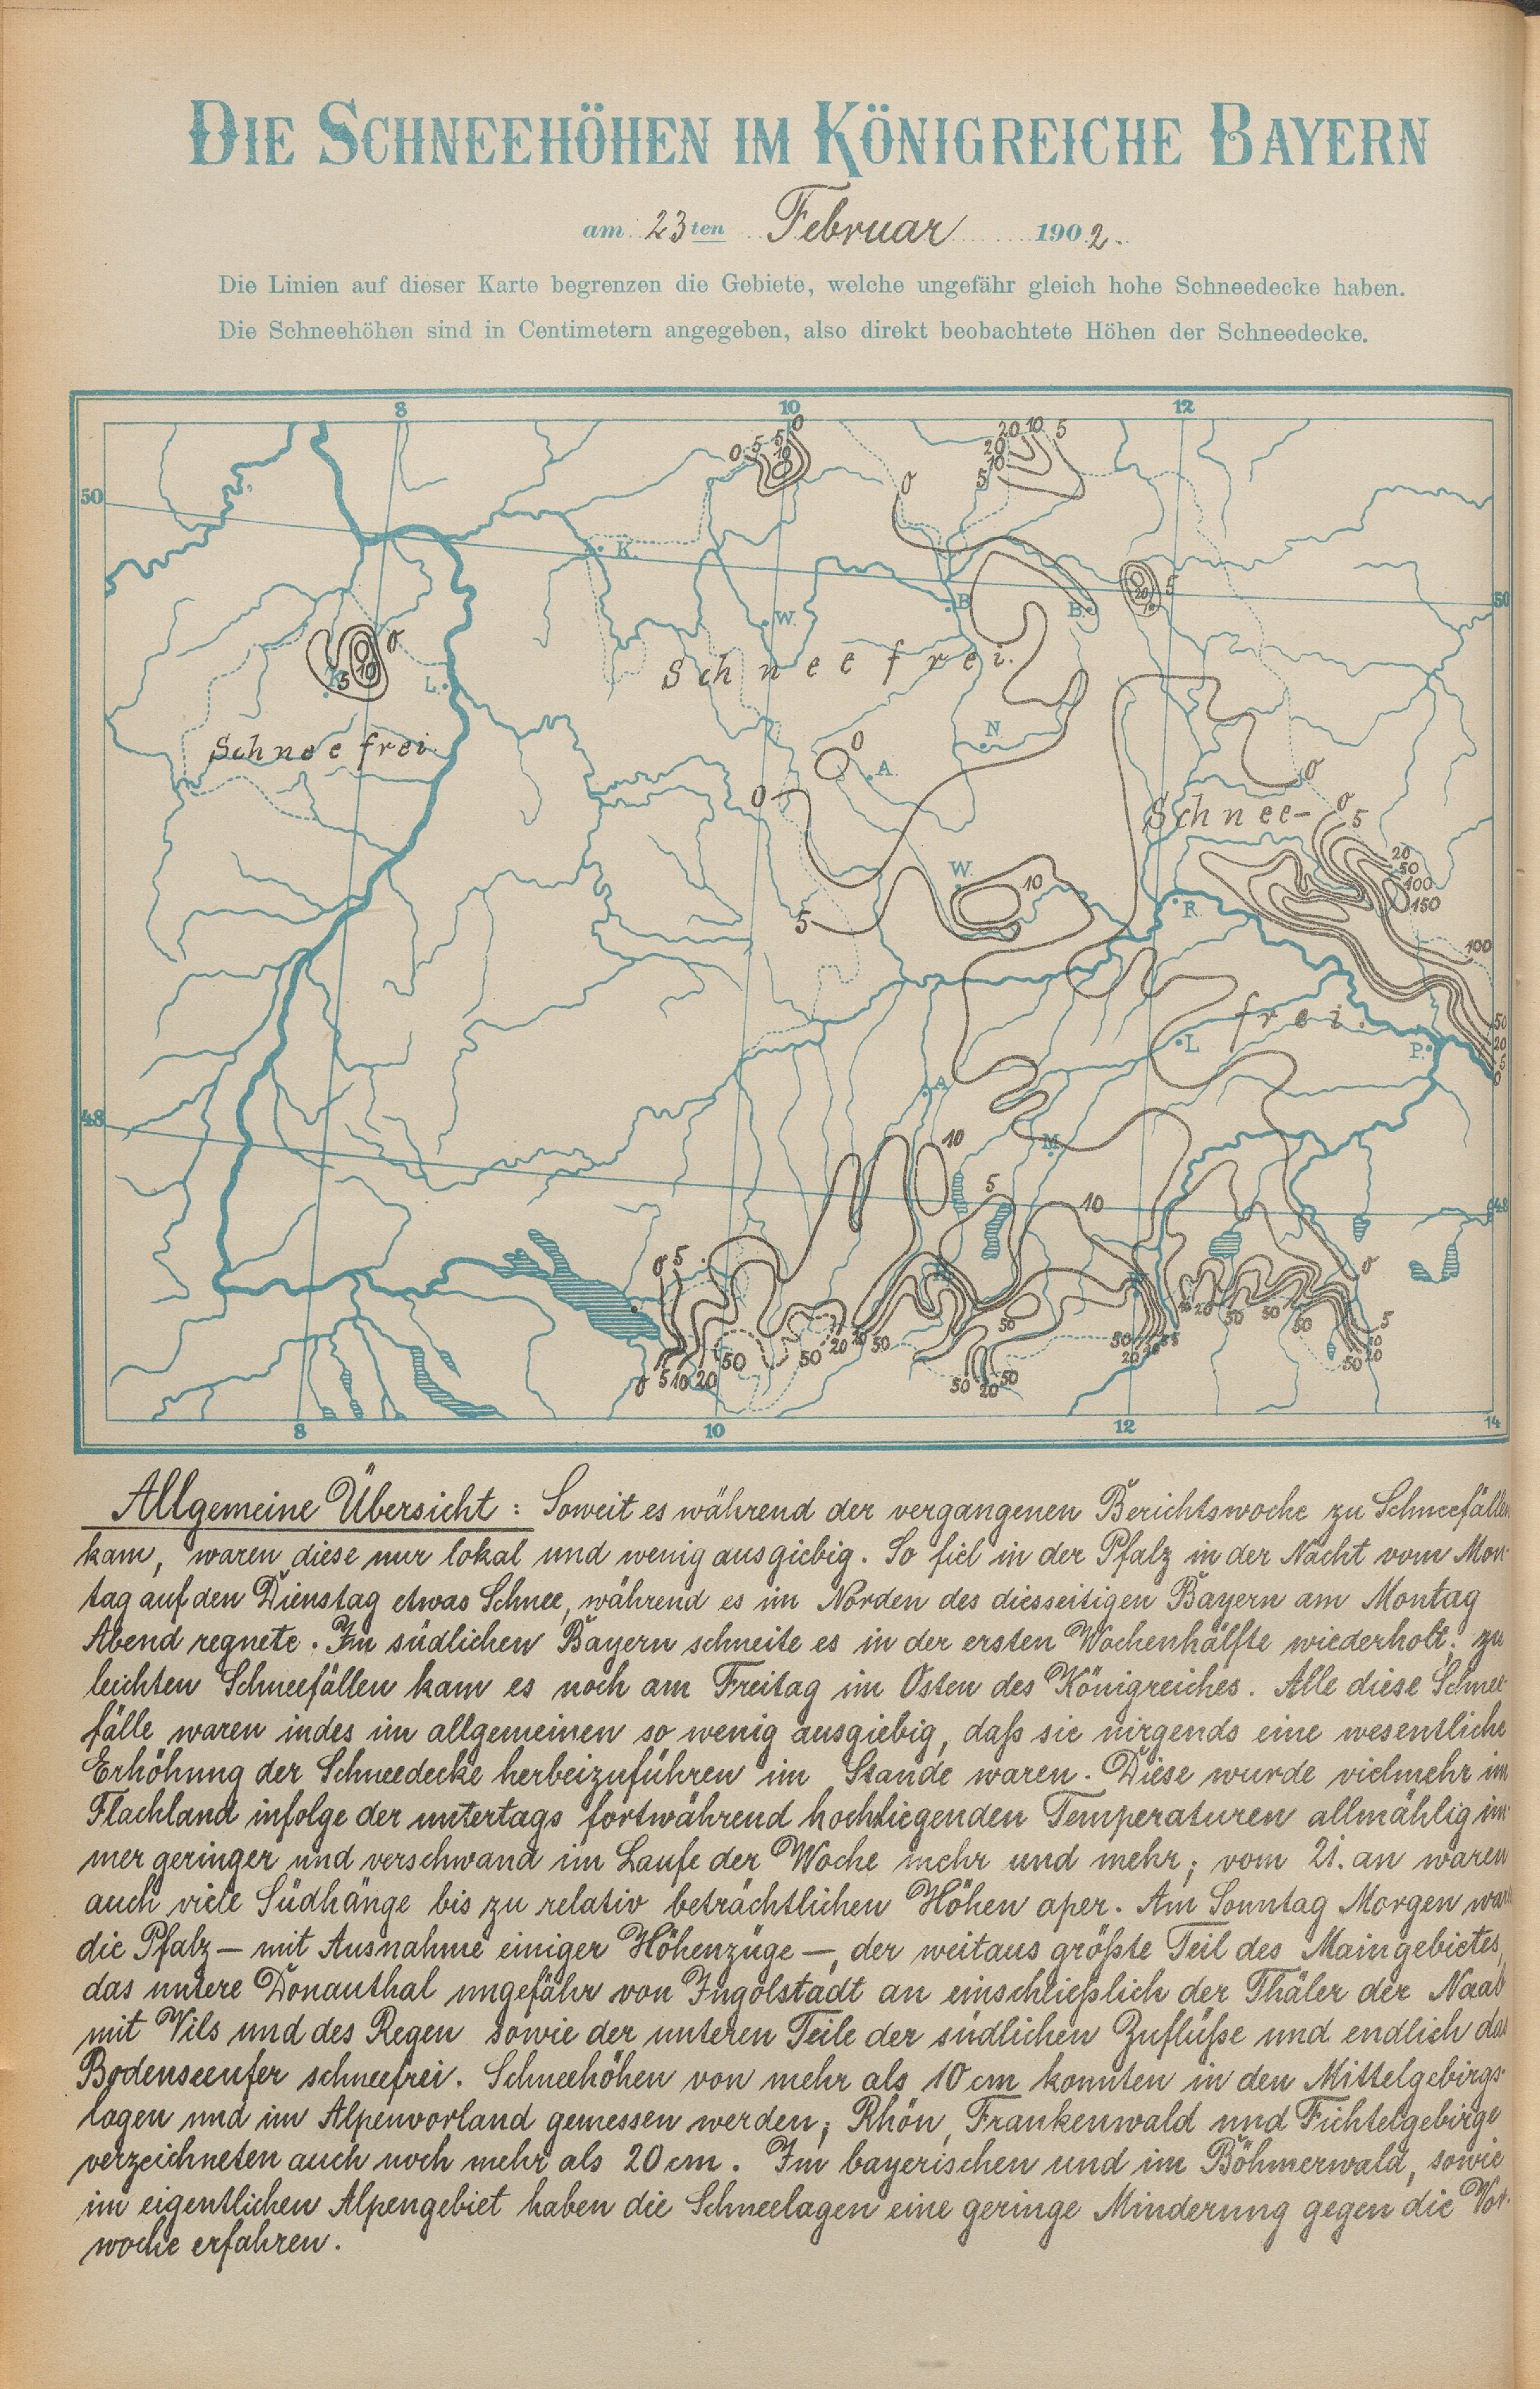 DIE SCHNEEHÖHEN IM KÖNIGREICHE BAYERN
am 23ten Februar 1902.
Die Linien auf dieser Karte begrenzen die Gebiete, welche ungefähr gleich hohe Schneedecke haben.
Die Schneehöhen sind in Centimetern angegeben, also direkt beobachtete Höhen der Schneedecke.
8 10 12
0 5 5 0
10
20 10 5
20
10
5
0
50
K.
5
20
10
50
B. B.
W.
0
5 10
L.
Schneefrei.
Schneefrei.
N
0
A.
0
0
Schnee-
0
5
20
50
100
150
W.
10
5
R.
100
frei.
L
P.
50
20
5
0
A
48
M.
10
5
10
48
0 5
0
50
50
20
50
5
10
20
50
0 5 10 20
50
50
20
50
50 20 50
8 10 12 14
Allgemeine Übersicht: Soweit es während der vergangenen Berichtswoche zu Schneefällen
kam, waren diese nur lokal und wenig ausgiebig. So fiel in der Pfalz in der Nacht vom Mon-
tag auf den Dienstag etwas Schnee, während es im Norden des diesseitigen Bayern am Montag
Abend regnete. Im südlichen Bayern schneite es in der ersten Wochenhälfte wiederholt; zu
leichten Schneefällen kam es noch am Freitag im Osten des Königreiches. Alle diese Schnee-
fälle waren indes im allgemeinen so wenig ausgiebig, daß sie nirgends eine wesentliche
Erhöhung der Schneedecke herbeizuführen im Stande waren. Diese wurde vielmehr im
Flachland infolge der untertags fortwährend hochliegenden Temperaturen allmählig im-
mer geringer und verschwand im Laufe der Woche mehr und mehr; vom 21. an waren
auch viele Südhänge bis zu relativ beträchtlichen Höhen aper. Am Sonntag Morgen war
die Pfalz – mit Ausnahme einiger Höhenzüge –, der weitaus größte Teil des Maingebietes,
das untere Donauthal ungefähr von Ingolstadt an einschließlich der Thäler der Naab
mit Vils und des Regen sowie der unteren Teile der südlichen Zuflüße und endlich das
Bodenseeufer schneefrei. Schneehöhen von mehr als 10 cm konnten in den Mittelgebirgs-
lagen und im Alpenvorland gemessen werden; Rhön, Frankenwald und Fichtelgebirge
verzeichneten auch noch mehr als 20 cm. Im bayerischen und im Böhmerwald, sowie
im eigentlichen Alpengebiet haben die Schneelagen eine geringe Minderung gegen die Vor-
woche erfahren.